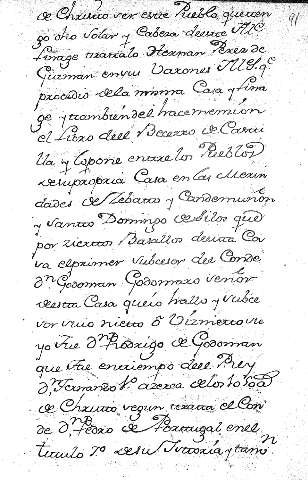 de Christo ver esste Pueblo que ten
go otro solar y Cabeza de este Yllᵉ
linage tratalo Hernan Perez de
Guzman en sus Varones Yllqᵉ
procedio de la misma Casa y lina
ge y tambien del hace memòn
el libro del Becerro de Casti
lla y lo pone entre los Pueblos
de su propria Casa en las Merin
dades de Zebatto y Candemuñòn
y Santto Domingo de Silos que
por ziertos Basallos de esta Ca
sa el primer subcesor del Conde
Dⁿ Godoman Godomaro señor
de esta Casa que io hallo y subce
sor suio nietto ò Vizniettto su
yo fue Dⁿ Rodrigo de Godoman
que fue en tiempo del Rey
Dⁿ Fernando 1º azerca de los 1060
de Christo segun tratta el Con
de Dⁿ Pedro de Portugal en el
titulo 7º de su Historia y tamⁿ